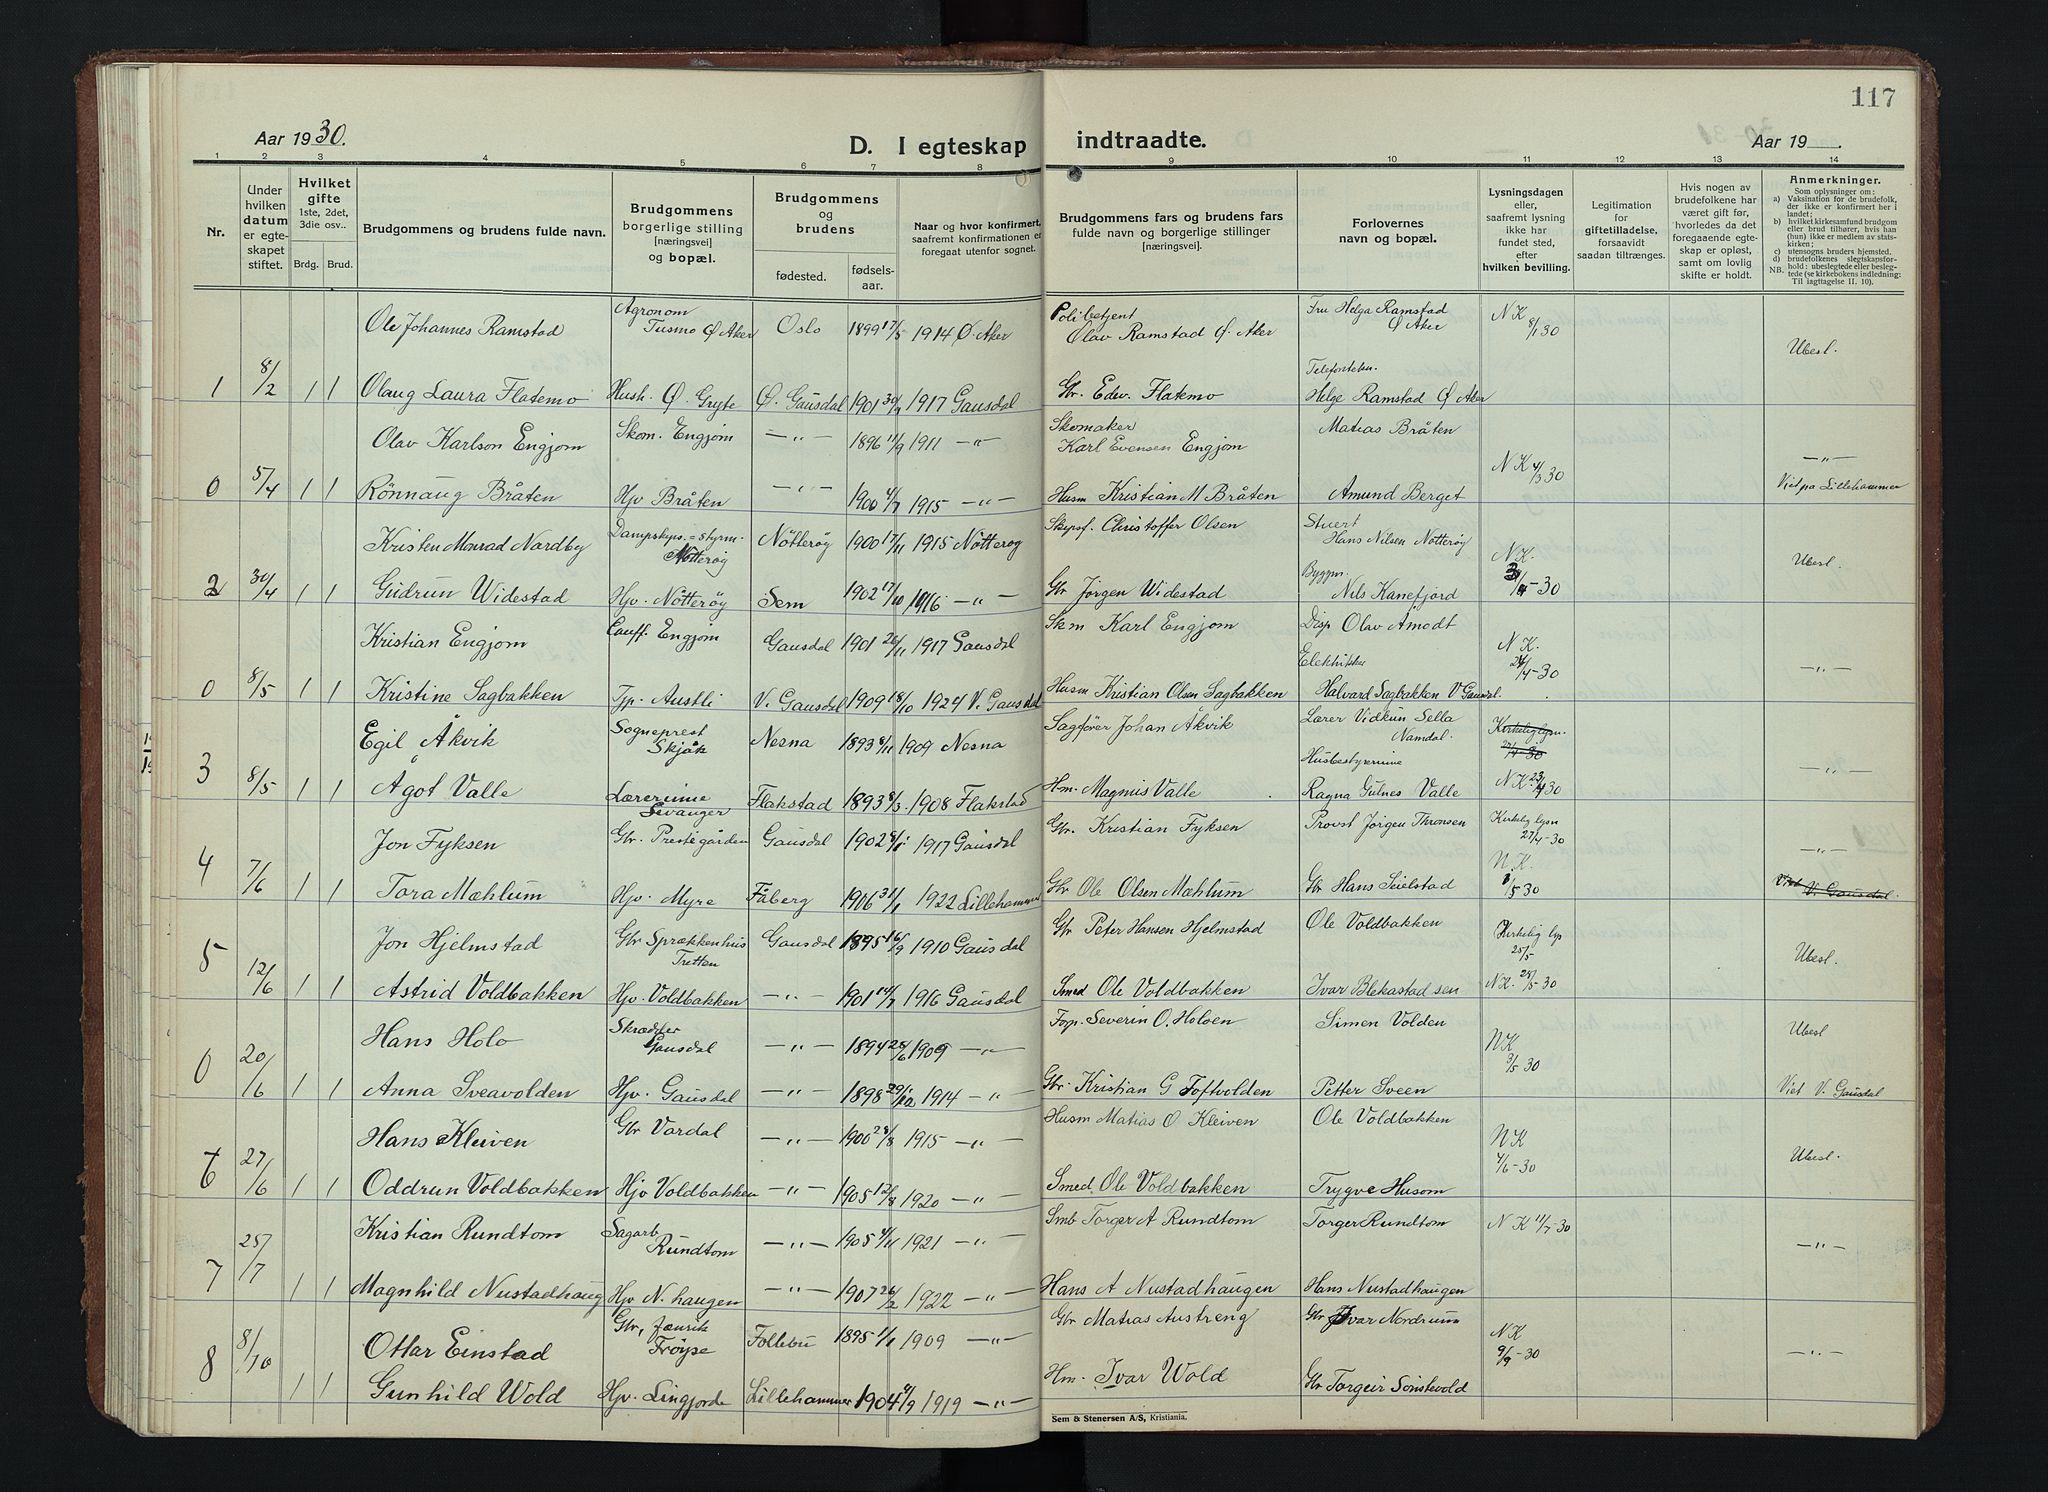 117
Aar 1930.
D. I egteskap indtraadte.
Aar 19
1 2 3 4 5 6 7 8 9 10 11 12 13 14
Nr.
Under hvilken datum er egteskapet stiftet.
Hvilket gifte 1ste, 2det, 3die osv..
Brdg. Brud.
Brudgommens og brudens fulde navn.
Brudgommens borgerlige stilling [næringsvei] og bopæl.
Brudgommens og brudens
fødested. fødselsaar.
Naar og hvor konfirmert, saafremt konfirmationen er foregaat utenfor sognet.
Brudgommens fars og brudens fars fulde navn og borgerlige stillinger [næringsvei].
Forlovernes navn og bopæl.
Lysningsdagen eller, saafremt lysning ikke har fundet sted, efter hvilken bevilling.
Legitimation for giftetilladelse, forsaavidt saadan tiltrænges.
Hvis nogen av brudefolkene har været gift før, hvorledes da det foregaaende egteskap er opløst, samt om lovlig skifte er holdt.
Anmerkninger.
Som oplysninger om:
a) Vaksination for de brudefolk, der ikke er konfirmert her i landet;
b) hvilket kirkesamfund brudgom eller brud tilhører, hvis han (hun) ikke er medlem av statskirken;
c) utensogns bruders hjemsted.
d) brudefolkenes slegtskapsforhold: ubeslegtede eller beslegtede (se kirkebokens indledning: Til iagttagelse II. 10).
NB.
Ole Johannes Ramstad Agronom Tusmo Ø Aker Oslo 1899 17/5 1914 Ø. Aker Polibetjent Olav Ramstad Ø. Aker Fru Helga Ramstad Ø Aker N K 8/1 30 Ubesl.
1 8/2 1 1 Olaug Laura Flatemo Hush. Ø. Gryte Ø. Gausdal 1901 30/9 1917 Gausdal Gbr. Edv. Flatemo Helge Ramstad Ø Aker
Olav Karlson Engjom Skom. Engjom -"- 1896 11/9 1911 -"- Skomaker Karl Evensen Engjom Matias Bråten N K 4/3 30 -"-
0 5/4 1 1 Rönnaug Bråten Hjv Bråten -"- 1900 4/7 1915 -"- Husm Kristian M Bråten Amund Berget Viet på Lillehammer
Kristen Monrad Nordby Dampskips=styrm. Nötteröy Nötteröy 1900 17/11 1915 Nötteröy Skipsf. Christoffer Olsen Stuert Hans Nilsen Nötteröy N K. Ubesl.
2 30/4 1 1 Gudrun Widestad Hjv. Nötteröy Sem 1902 17/10 1916 -"- Gbr Jörgen Widestad Byggm. Nils Kanefjord 30
Kristian Engjom Engjom Gausdal 1901 26/11 1917 Gausdal Skm Karl Engjom Disp Olav Amodt N K. 24/4-30 -"-
0 8/5 1 1 Kristine Sagbakken Tjp. Austli V. Gausdal 1909 18/10 1924 V. Gausdal Husm Kristian Olsen Sagbakken Halvard Sagbakken V Gausdal.
Egil Åkvik Sogneprest Skjåk Nesna 1893 8/11 1909 Nesna Sagfører Johan Åkvik Lærer Vidkun Sella Namdal. Kirkelig lysn. 27/4-30
3 8/5 1 1 Agot Valle Lærerinne Levanger Flakstad 1893 8/3. 1908 Flakstad Hm. Magnus Valle Husbestyrerinne Ragna Gulnes Valle N K. 23/4 30 -"-
Jon Fyksen Gbr. Prestegården Gausdal 1902 8/1 1917 Gausdal Gbr. Kristian Fyksen Provst Jørgen Thronsen Kirkelig lysn 27/4-30 -"-
4 7/6 1 1 Tora Mæhlum Hjv. Myre Fåberg 1906 31/1 1922 Lillehammer Gbr Ole Olsen Mæhlum Gbr Hans Seielstad N K. 5 30 Viet V. Gausdal.
Jon Hjelmstad Gbr Sprækkenhus Tretten Gausdal 1895 16/9 1910 Gausdal Gbr Peter Hansen Hjelmstad Ole Voldbakken Kirkelig lys 25/5 Ubesl.
5 12/6 1 1 Astrid Voldbakken Hjv. Voldbakken -"- 1901 14/7 1916 Gausdal Smed Ole Voldbakken Ivar Blekastad sen N K. 28/5-30
Hans Holo Skrædder Gausdal -"- 1894 28/6 1909 -"- Forp. Severin O. Holoen Simen Volden N K 9/5 30 Ubesl
0 20/6 1 1 Anna Sveavolden Hjv. Gausdal -"- 1898 29/12 1914 -"- Gbr. Kristian G Toftvolden Petter Sveen Viet V. Gausdal
Hans Kleiven Gbr Vardal -"- 1900 28/8 1915 -"- Husm Matias O Kleiven Ole Voldbakken N K 4/6-30 Ubesl.
6 27/6 1 1 Oddrun Voldbakken Hjv Voldbakken -"- 1905 12/8 1920 -"- Smed Ole Voldbakken Trygve Husom
Kristian Rundtom Sagarb Rundtom -"- 1905 4/11 1921 -"- Smb Torger A Rundtom Torger Rundtom N K 11/7-30 -"-
7 25/7 1 1 Magnhild Nustadhaug Hjv N. haugen -"- 1907 26/2 1922 -"- Hans A Nustadhaugen Hans Nustadhaugen
Ottar Einstad Gbr, Frøyse Follebu 1895 1/1 1909 -"- Gbr Matias Austreng Gbr Ivar Nordrum N K 9/9-30 -"-
8 8/10 1 1 Gunhild Wold Hjv. Lingjorde Lillehammer 1904 4/9 1919 -"- Hm. Ivar Wold Gbr Torgeir Sönstevold
Sem & Stenersen A/S, Kristiania.